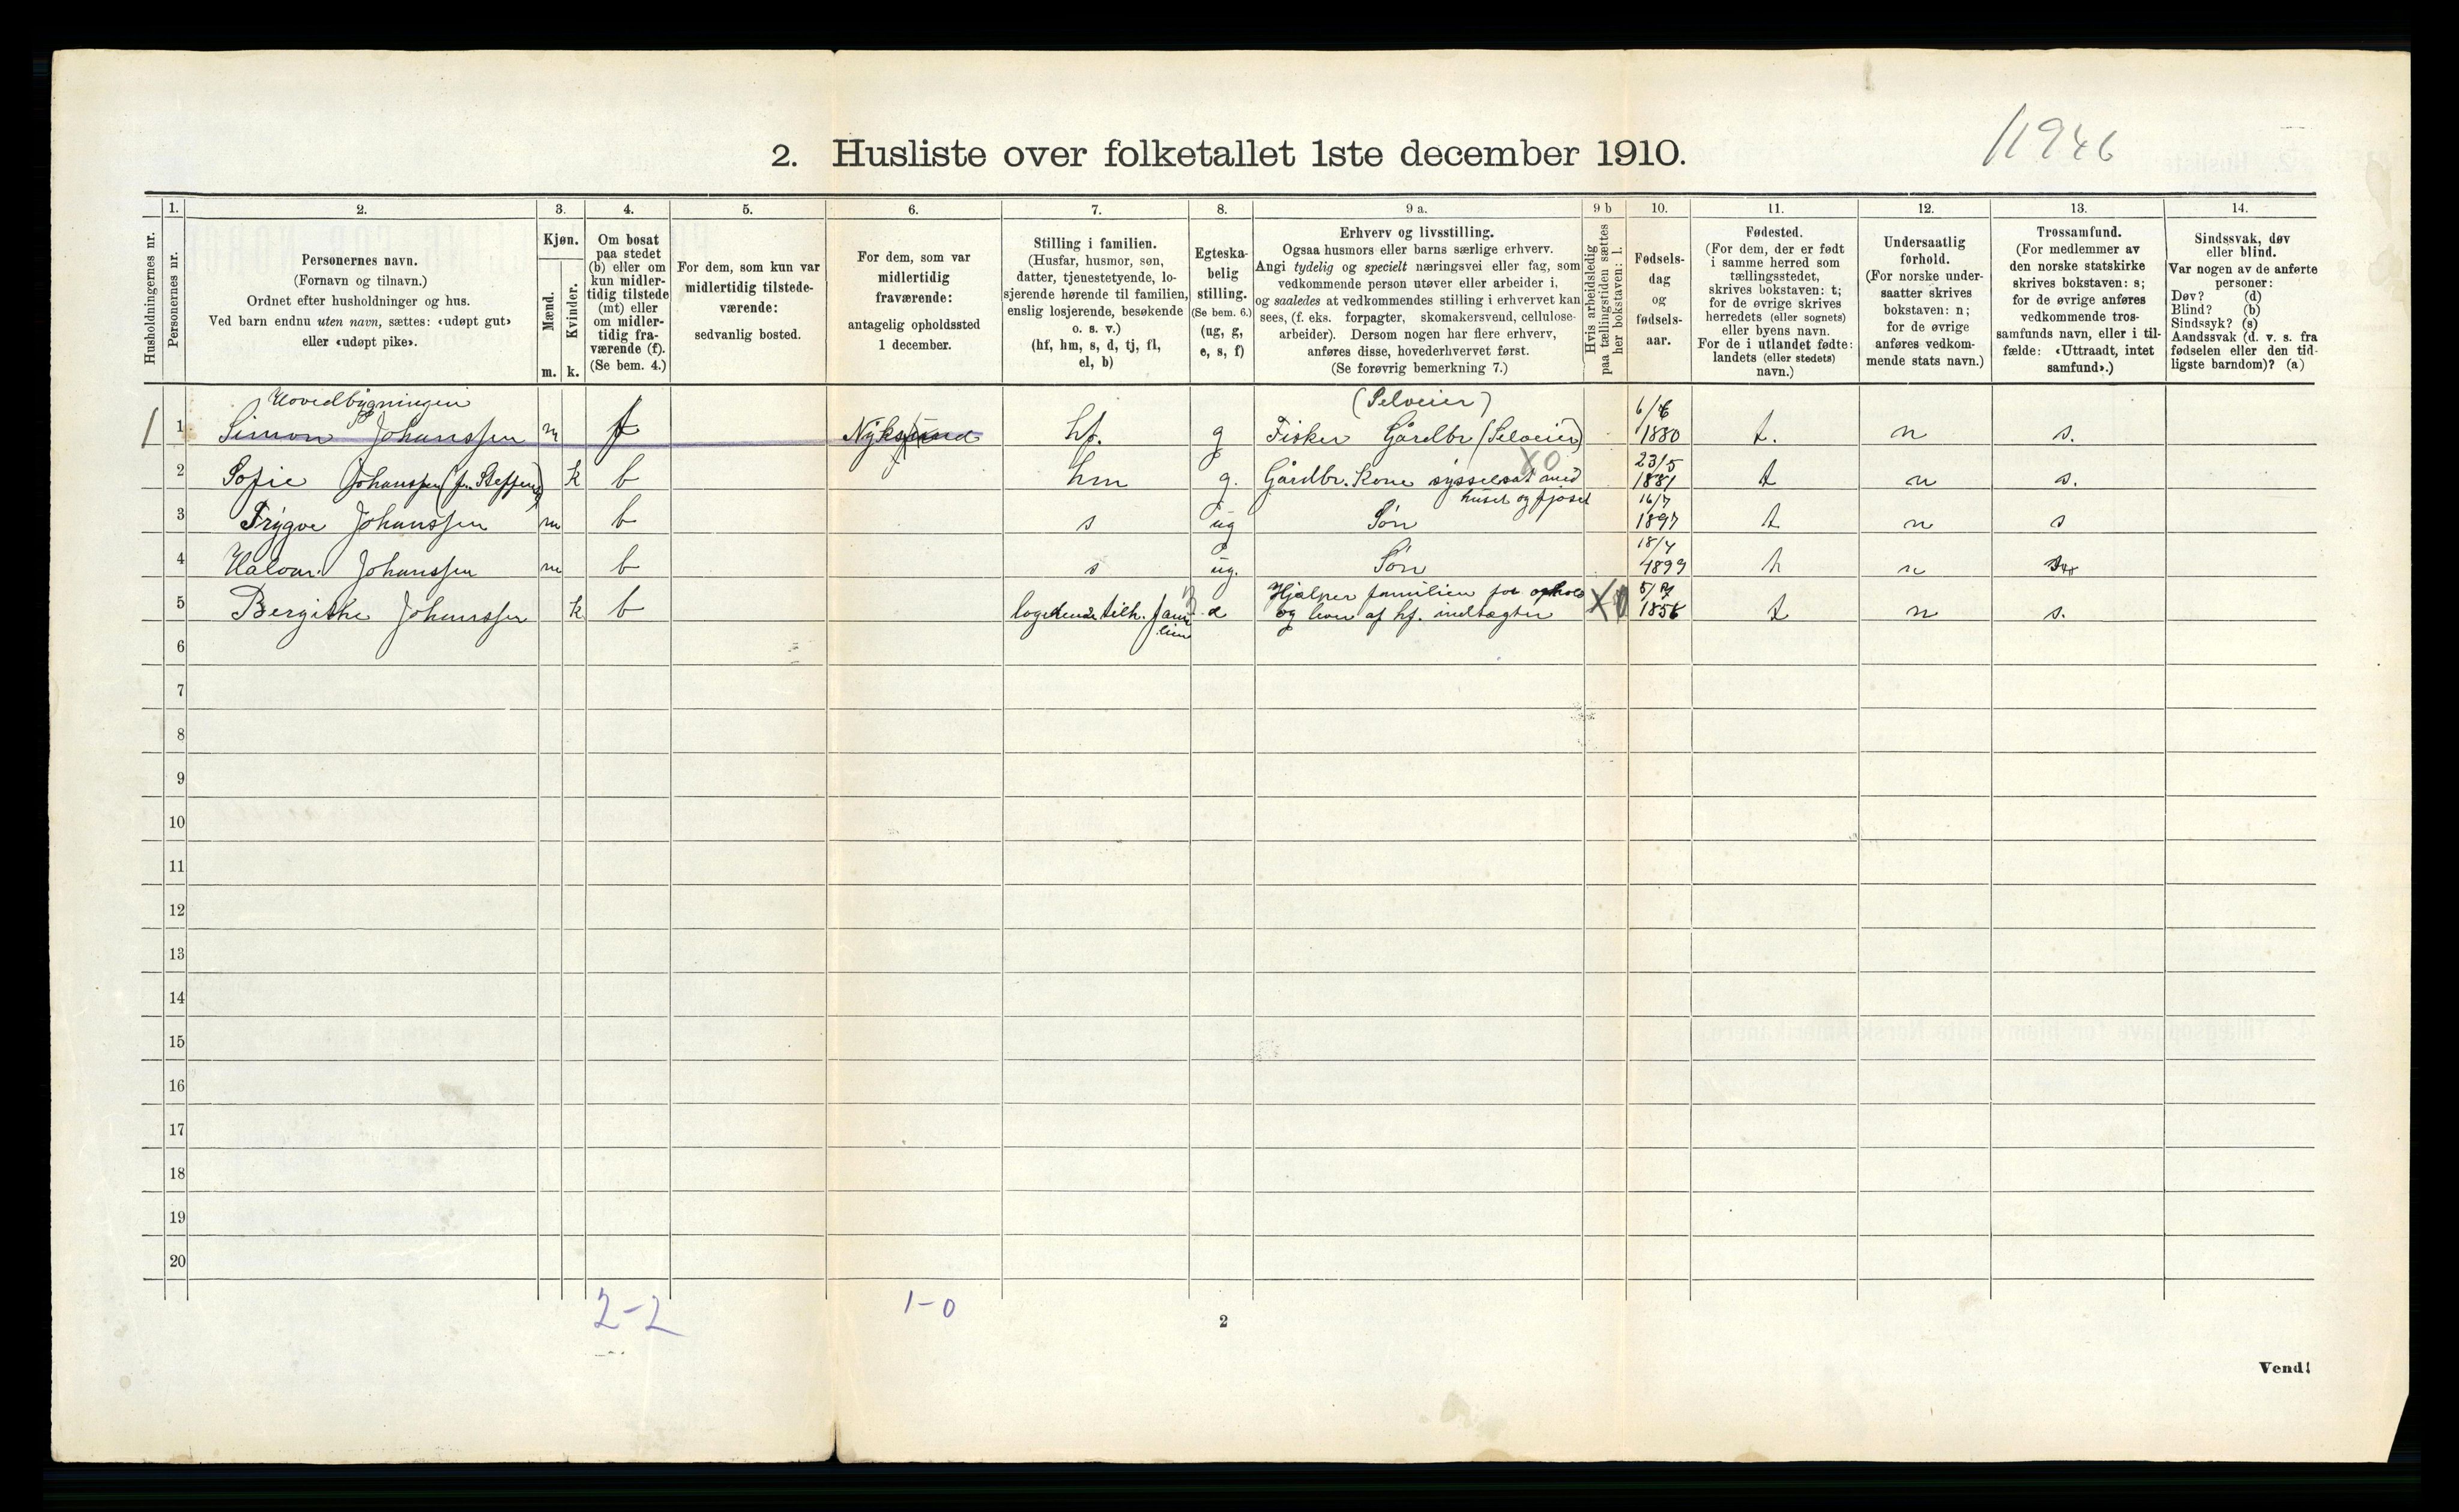 2. Husliste over folketallet 1ste december 1910.
11946
Husholdningernes nr.
1.
Personernes nr.
2.
Personernes navn.
(Fornavn og tilnavn.)
Ordnet efter husholdninger og hus.
Ved barn endnu uten navn, sættes: «udøpt gut»
eller «udøpt pike».
3.
Kjøn.
Mænd.
Kvinder.
m.
k.
4.
Om bosat
paa stedet
(b) eller om
kun midler-
tidig tilstede
(mt) eller
om midler-
tidig fra-
værende (f).
(Se bem. 4.)
5.
For dem, som kun var
midlertidig tilstede-
værende:
sedvanlig bosted.
6.
For dem, som var
midlertidig
fraværende:
antagelig opholdssted
1 december.
7.
Stilling i familien.
(Husfar, husmor, søn,
datter, tjenestetyende, lo-
sjerende hørende til familien,
enslig losjerende, besøkende
o. s. v.)
(hf, hm, s, d, tj, fl,
el, b)
8.
Egteska-
belig
stilling.
(Se bem. 6.)
(ug, g,
e, s, f)
9 a.
Erhverv og livsstilling.
Ogsaa husmors eller barns særlige erhverv.
Angi tydelig og specielt næringsvei eller fag, som
vedkommende person utøver eller arbeider i,
og saaledes at vedkommendes stilling i erhvervet kan
sees, (f. eks. forpagter, skomakersvend, cellulose-
arbeider). Dersom nogen har flere erhverv,
anføres disse, hovederhvervet først.
(Se forøvrig bemerkning 7.)
9 b
Hvis arbeidsledig
paa tællingstiden sættes
her bokstaven: l.
10.
Fødsels-
dag
og
fødsels-
aar.
11.
Fødested.
(For dem, der er født
i samme herred som
tællingsstedet,
skrives bokstaven: t;
for de øvrige skrives
herredets (eller sognets)
eller byens navn.
For de i utlandet fødte:
landets (eller stedets)
navn.)
12.
Undersaatlig
forhold.
(For norske under-
saatter skrives
bokstaven: n;
for de øvrige
anføres vedkom-
mende stats navn.)
13.
Trossamfund.
(For medlemmer av
den norske statskirke
skrives bokstaven: s;
for de øvrige anføres
vedkommende tros-
samfunds navn, eller i til-
fælde: «Uttraadt, intet
samfund».)
14.
Sindssvak, døv
eller blind.
Var nogen av de anførte
personer:
Døv? (d)
Blind? (b)
Sindssyk? (s)
Aandssvak (d. v. s. fra
fødselen eller den tid-
ligste barndom)? (a)
Hovedbygningen
(Selveier)
1 1 Simon Johanssen m f Nyksund hf. g Fisker Gårdbr (Selveier) 6/6 1880 t. n s.
2 Sofie Johanssen (f. Steffens) k b hm g. Gårdbr. Kone sysselsat med X0 23/5 1881 t n s.
huset og fjøset
3 Trygve Johanssen m b s ug Søn 16/7 1897 t n s
4 Halvar Johanssen m b s ug. Søn 18/4 1899 n
5 Bergitke Johanssen k b logerende tilh. fami- Hjælper familien for ophold X0 1856 t n s.
lien og lever af hf. indtægter
6
7
8
9
10
11
12
13
14
15
16
17
18
19
20
2-2
1-0
2
Vend!